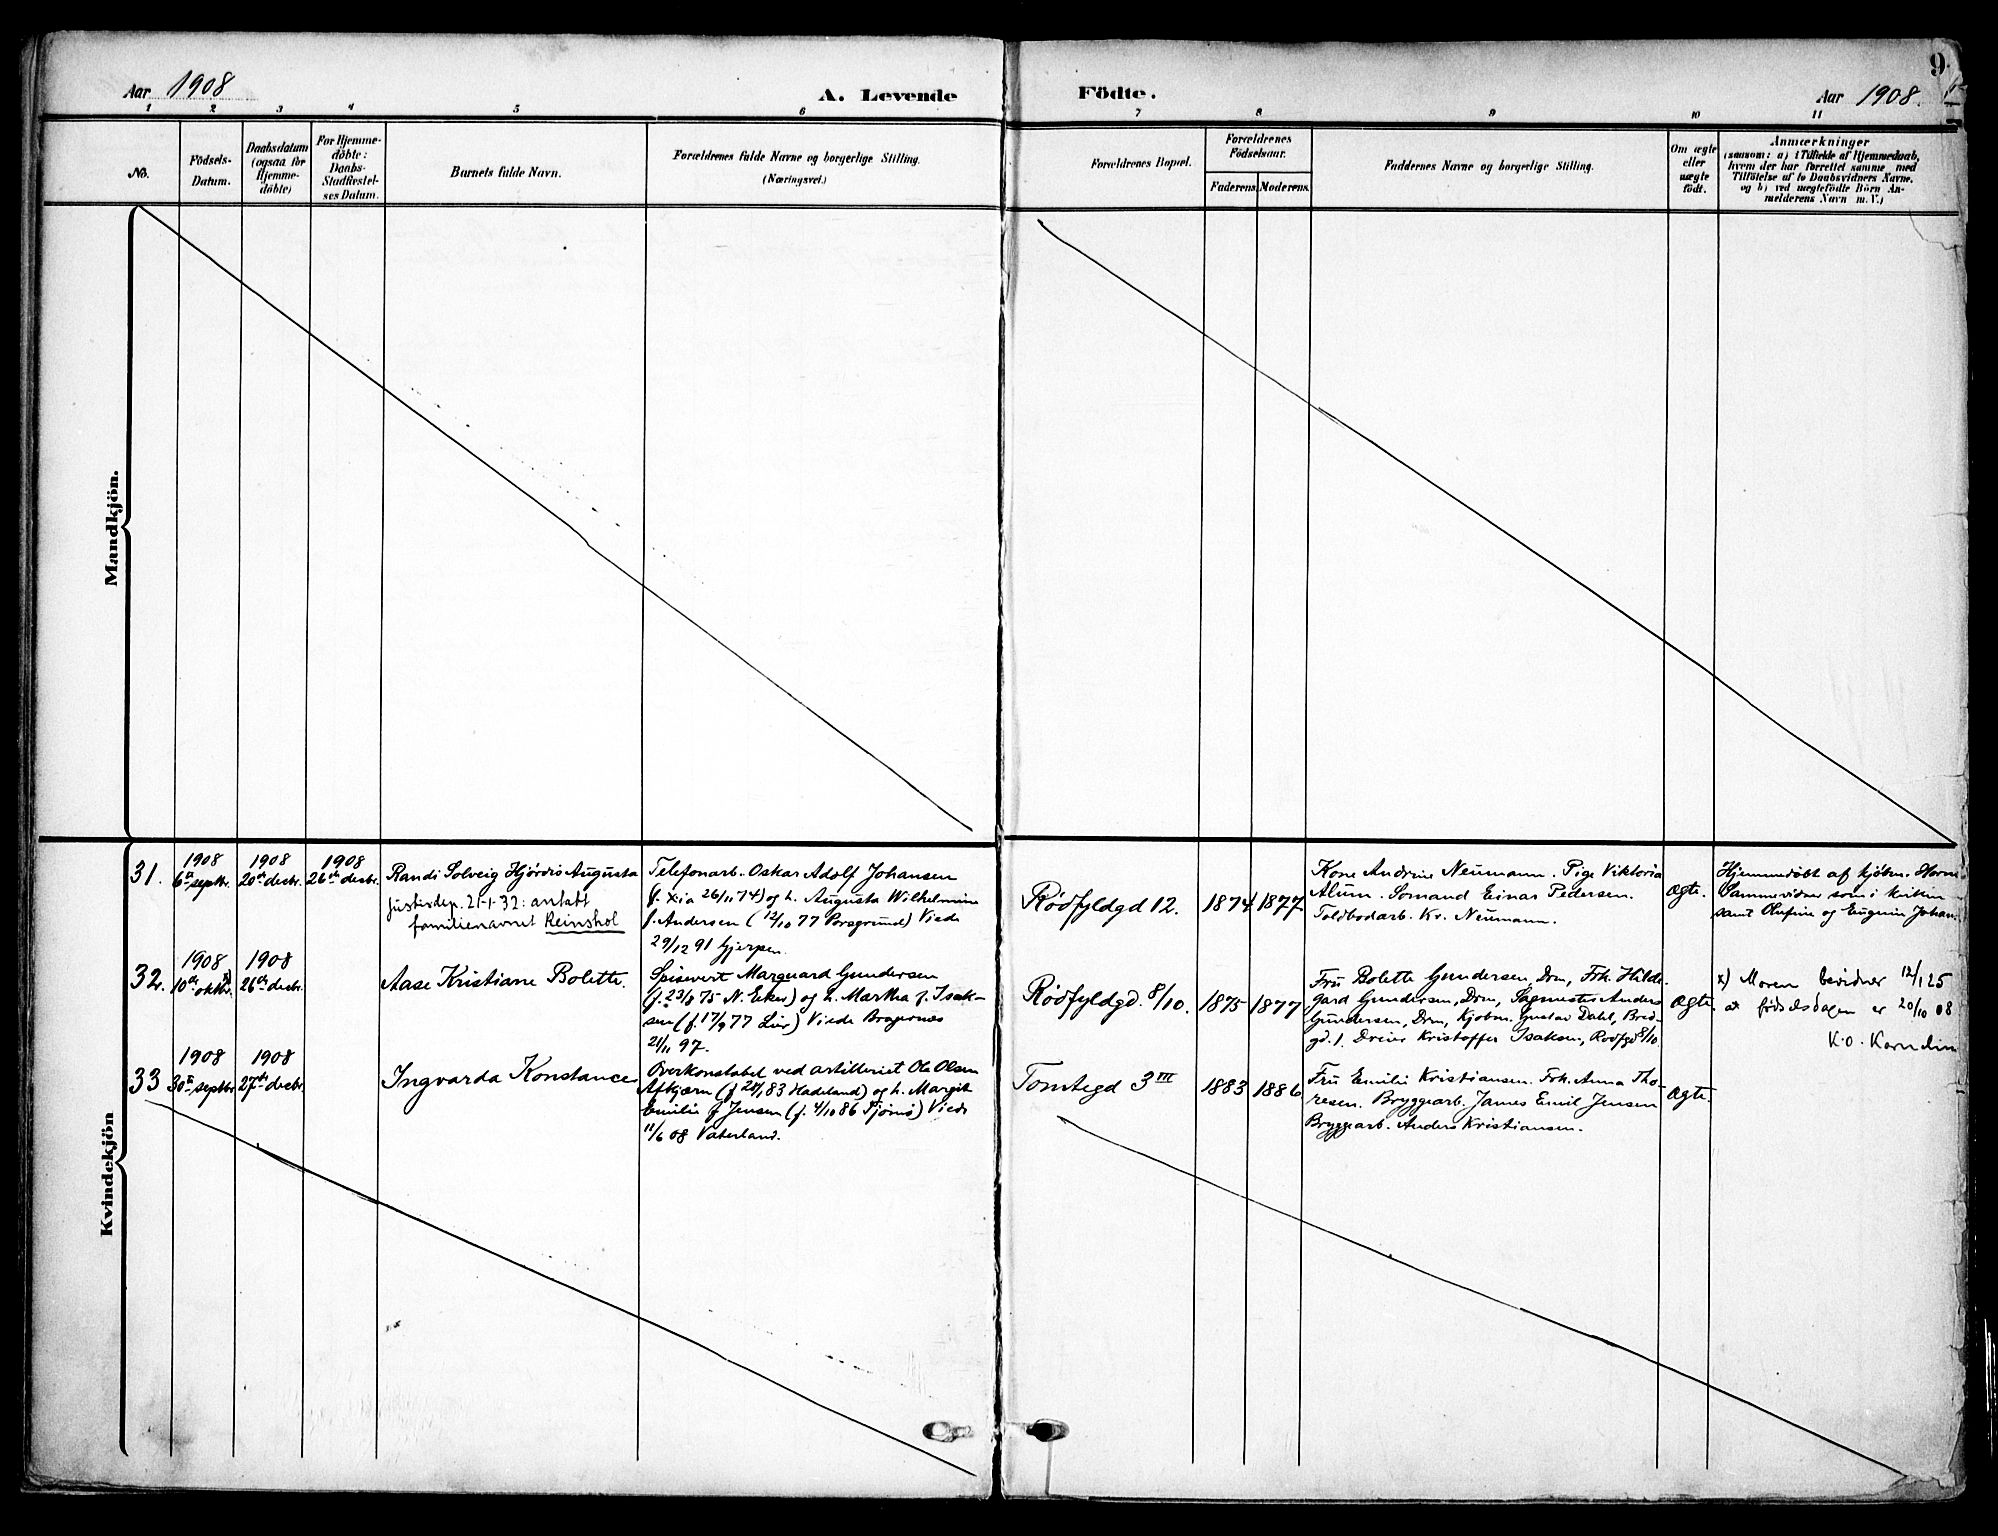 Aar 1908
A. Levende
Födte.
Aar 1908.
9
1 2 3 4 5 6 7 8 9 10 11
No.
Födsels-
Datum.
Daabsdatum
(ogsaa for
Hjemme-
döbte)
For Hjemme-
döbte:
Daabs-
Stadfæstel-
ses Datum.
Barnets fulde Navn.
Forældrenes fulde Navne og borgerlige Stilling.
(Næringsvei.)
Forældrenes Bopæl.
Forældrenes
Födselsaar.
Faderens.
Moderens.
Faddernes Navne og borgerlige Stilling.
Om ægte
eller
uægte
födt.
Anmærkninger
(saasom: a) i Tilfælde af Hjemmedaab,
hvem der har forrettet samme med
Tilföielse af to Daabsvidners Navne.
og b) ved uægtefödte Börn An-
melderens Navn m. V.)
Mandkjön.
Kvindekjön
31.
1908
6te septbr.
1908
20de decbr.
1908
26de decbr.
Randi Solveig Hjördis Augusta
Justisdep. 21-1-32: antatt
familienavnet Reinshol
Telefonarb. Oskar Adolf Johansen
(f. Xia 26/11 74) og h. Augusta Wilhelmine
f. Andersen (12/10 77 Porsgrund) Viede
29/12 91 Gjerpen.
Rødfyldgd 12.
1874
1877
Kone Andrine Neumann. Pige Viktoria
Alum. Sømand Einar Pedersen.
Toldbodarb. Kr. Neumann.
Ægte.
Hjemmedöbt af kjøbm. Horne
Sammevidner som i kirken
samt Olufine og Eugenie Johan.
32.
1908
10de oktbr. x)
1908
26de decbr.
Aase Kristiane Bolette.
Spisevert Marquard Gundersen
(f. 23/8 75 N. Eker) og h. Martha f. Isak-
sen (f. 17/9 77 Lier) Viede Bragernæs
21/11 97.
Rødfyldgd. 8/10.
1875
1877
Fru Bolette Gundersen, Drm, Frk. Hilde-
gard Gundersen, Drm, Sagmester Anders
Gundersen, Drm, Kjøbm. Gustav Dahl, Bred-
gd. 1. Dreier Kristoffer Isaksen, Rødfgd 8/10
Ægte.
x) Moren bevidner 12/1 25
at fødselsdagen er 20/10 08
K.O. Kornelin
33
1908
30te septbr.
1908
27de decbr.
Ingvarda Konstance
Overkonstabel ved artilleriet Ole Olsen
Askjærn (f. 20/1 83 Hadeland) og h. Margit
Emilie f. Jensen (f. 4/10 86 Tjømø) Viede
11/6 08 Vaterland.
Tomtegd 3 III
1883
1886
Fru Emilie Kristiansen. Frk. Anna Tho-
resen. Bryggearb. James Emil Jensen
Bryggearb. Anders Kristiansen.
Ægte.